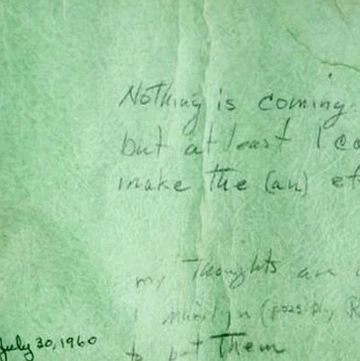 Nothing is coming
but at least I co
make the (an) ef
my Thoughts an
(possibly R
to put Them
July 30, 1960